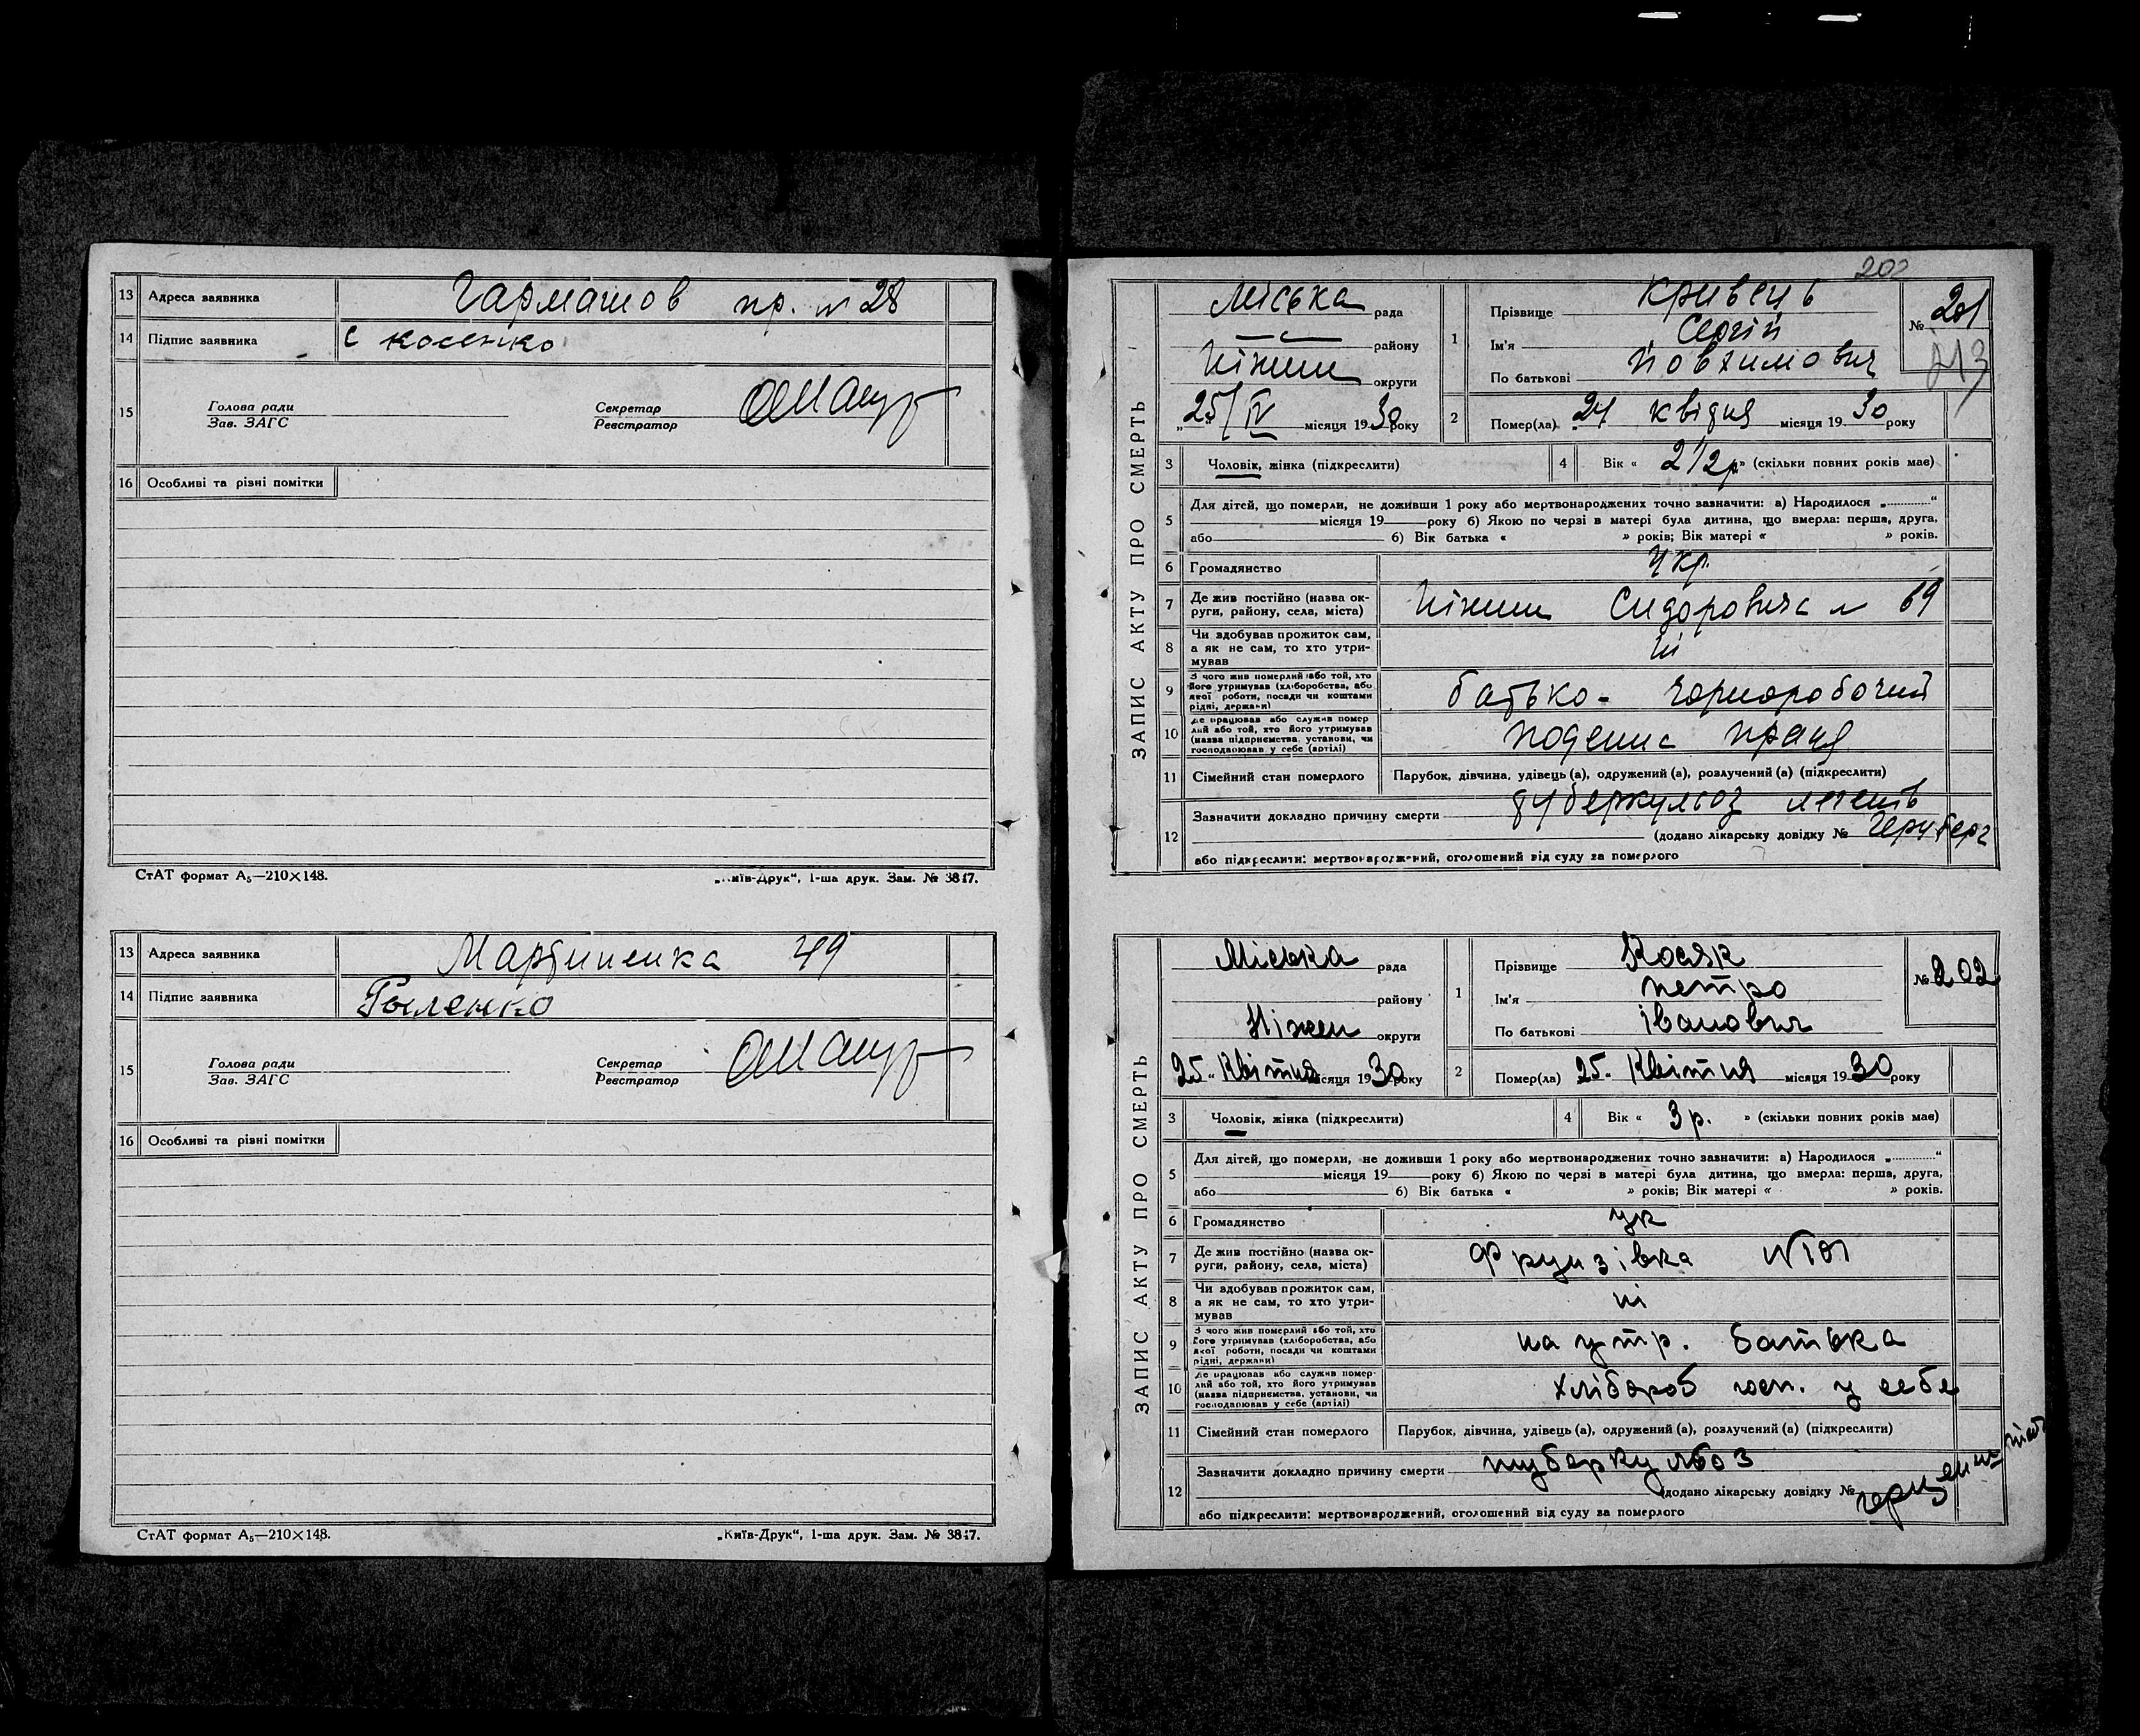 13 Адреса заявника Гармашов пр. № 28
14 Підпис заявника С Косенко
15 Голова ради Секретар
Зав. ЗАГС Реєстратор
16 Особливі та різні помітки
СтАТ формат А5—210×148. „Київ-Друк“, 1-ша друк. Зам. № 3817.
13 Адреса заявника Мартиненка 49
14 Підпис заявника
15 Голова ради Секретар
Зав. ЗАГС Реєстратор
16 Особливі та різні помітки
СтАТ формат А5—210×148. „Київ-Друк“, 1-ша друк. Зам. № 3817.
ЗАПИС АКТУ ПРО СМЕРТЬ
Міська рада
району
Ніжин округи
25/IV місяця 1930 року
1 Прізвище Кривець
Ім'я Сергій
По батькові Йовхимович
№ 201
2 Помер(ла) 24 квітня місяця 1930 року
3 Чоловік, жінка (підкреслити) 4 Вік « 2 1/2 р » (скільки повних років має)
5 Для дітей, що померли, не доживши 1 року або мертвонароджених точно зазначити: а) Народилося „............“
місяця 19 року б) Якою по черзі в матері була дитина, що вмерла: перша, друга,
або б) Вік батька « » років; Вік матері « » років.
6 Громадянство Укр.
7 Де жив постійно (назва округи, району, села, міста) Ніжин Сидоровича № 69
8 Чи здобував прожиток сам, а як не сам, то хто утримував ні
9 З чого жив померлий або той, хто його утримував (хліборобства, або якої роботи, посади чи коштами рідні, держави) батько - чорноробочий
10 Де працював або служив помер лий або той, хто його утримував (назва підприємства, установи, чи господарював у себе (артілі) поденна праця
11 Сімейний стан померлого Парубок, дівчина, удівець (а), одружений (а), розлучений (а) (підкреслити)
12 Зазначити докладно причину смерти туберкульоз легенів
(додано лікарську довідку №
або підкреслити: мертвонароджений, оголошений від суду за померлого
ЗАПИС АКТУ ПРО СМЕРТЬ
Міська рада
району
Ніжен округи
25 „ Квітня місяця 1930 року
1 Прізвище Косяк
Ім'я Петро
По батькові Іванович
№ 202
2 Помер(ла) 25. Квітня місяця 1930 року
3 Чоловік, жінка (підкреслити) 4 Вік « 3 р. » (скільки повних років має)
5 Для дітей, що померли, не доживши 1 року або мертвонароджених точно зазначити: а) Народилося „............“
місяця 19 року б) Якою по черзі в матері була дитина, що вмерла: перша, друга,
або б) Вік батька « » років; Вік матері « » років.
6 Громадянство ук
7 Де жив постійно (назва округи, району, села, міста) Фрунзівка № 101
8 Чи здобував прожиток сам, а як не сам, то хто утримував ні
9 З чого жив померлий або той, хто його утримував (хліборобства, або якої роботи, посади чи коштами рідні, держави) на утр. батька
10 Де працював або служив помер- лий або той, хто його утримував (назва підприємства, установи, чи господарював у себе (артілі) хлібороб госп. у себе
11 Сімейний стан померлого Парубок, дівчина, удівець (а), одружений (а), розлучений (а) (підкреслити)
12 Зазначити докладно причину смерти туберкульоз
(додано лікарську довідку №
або підкреслити: мертвонароджений, оголошений від суду за померлого